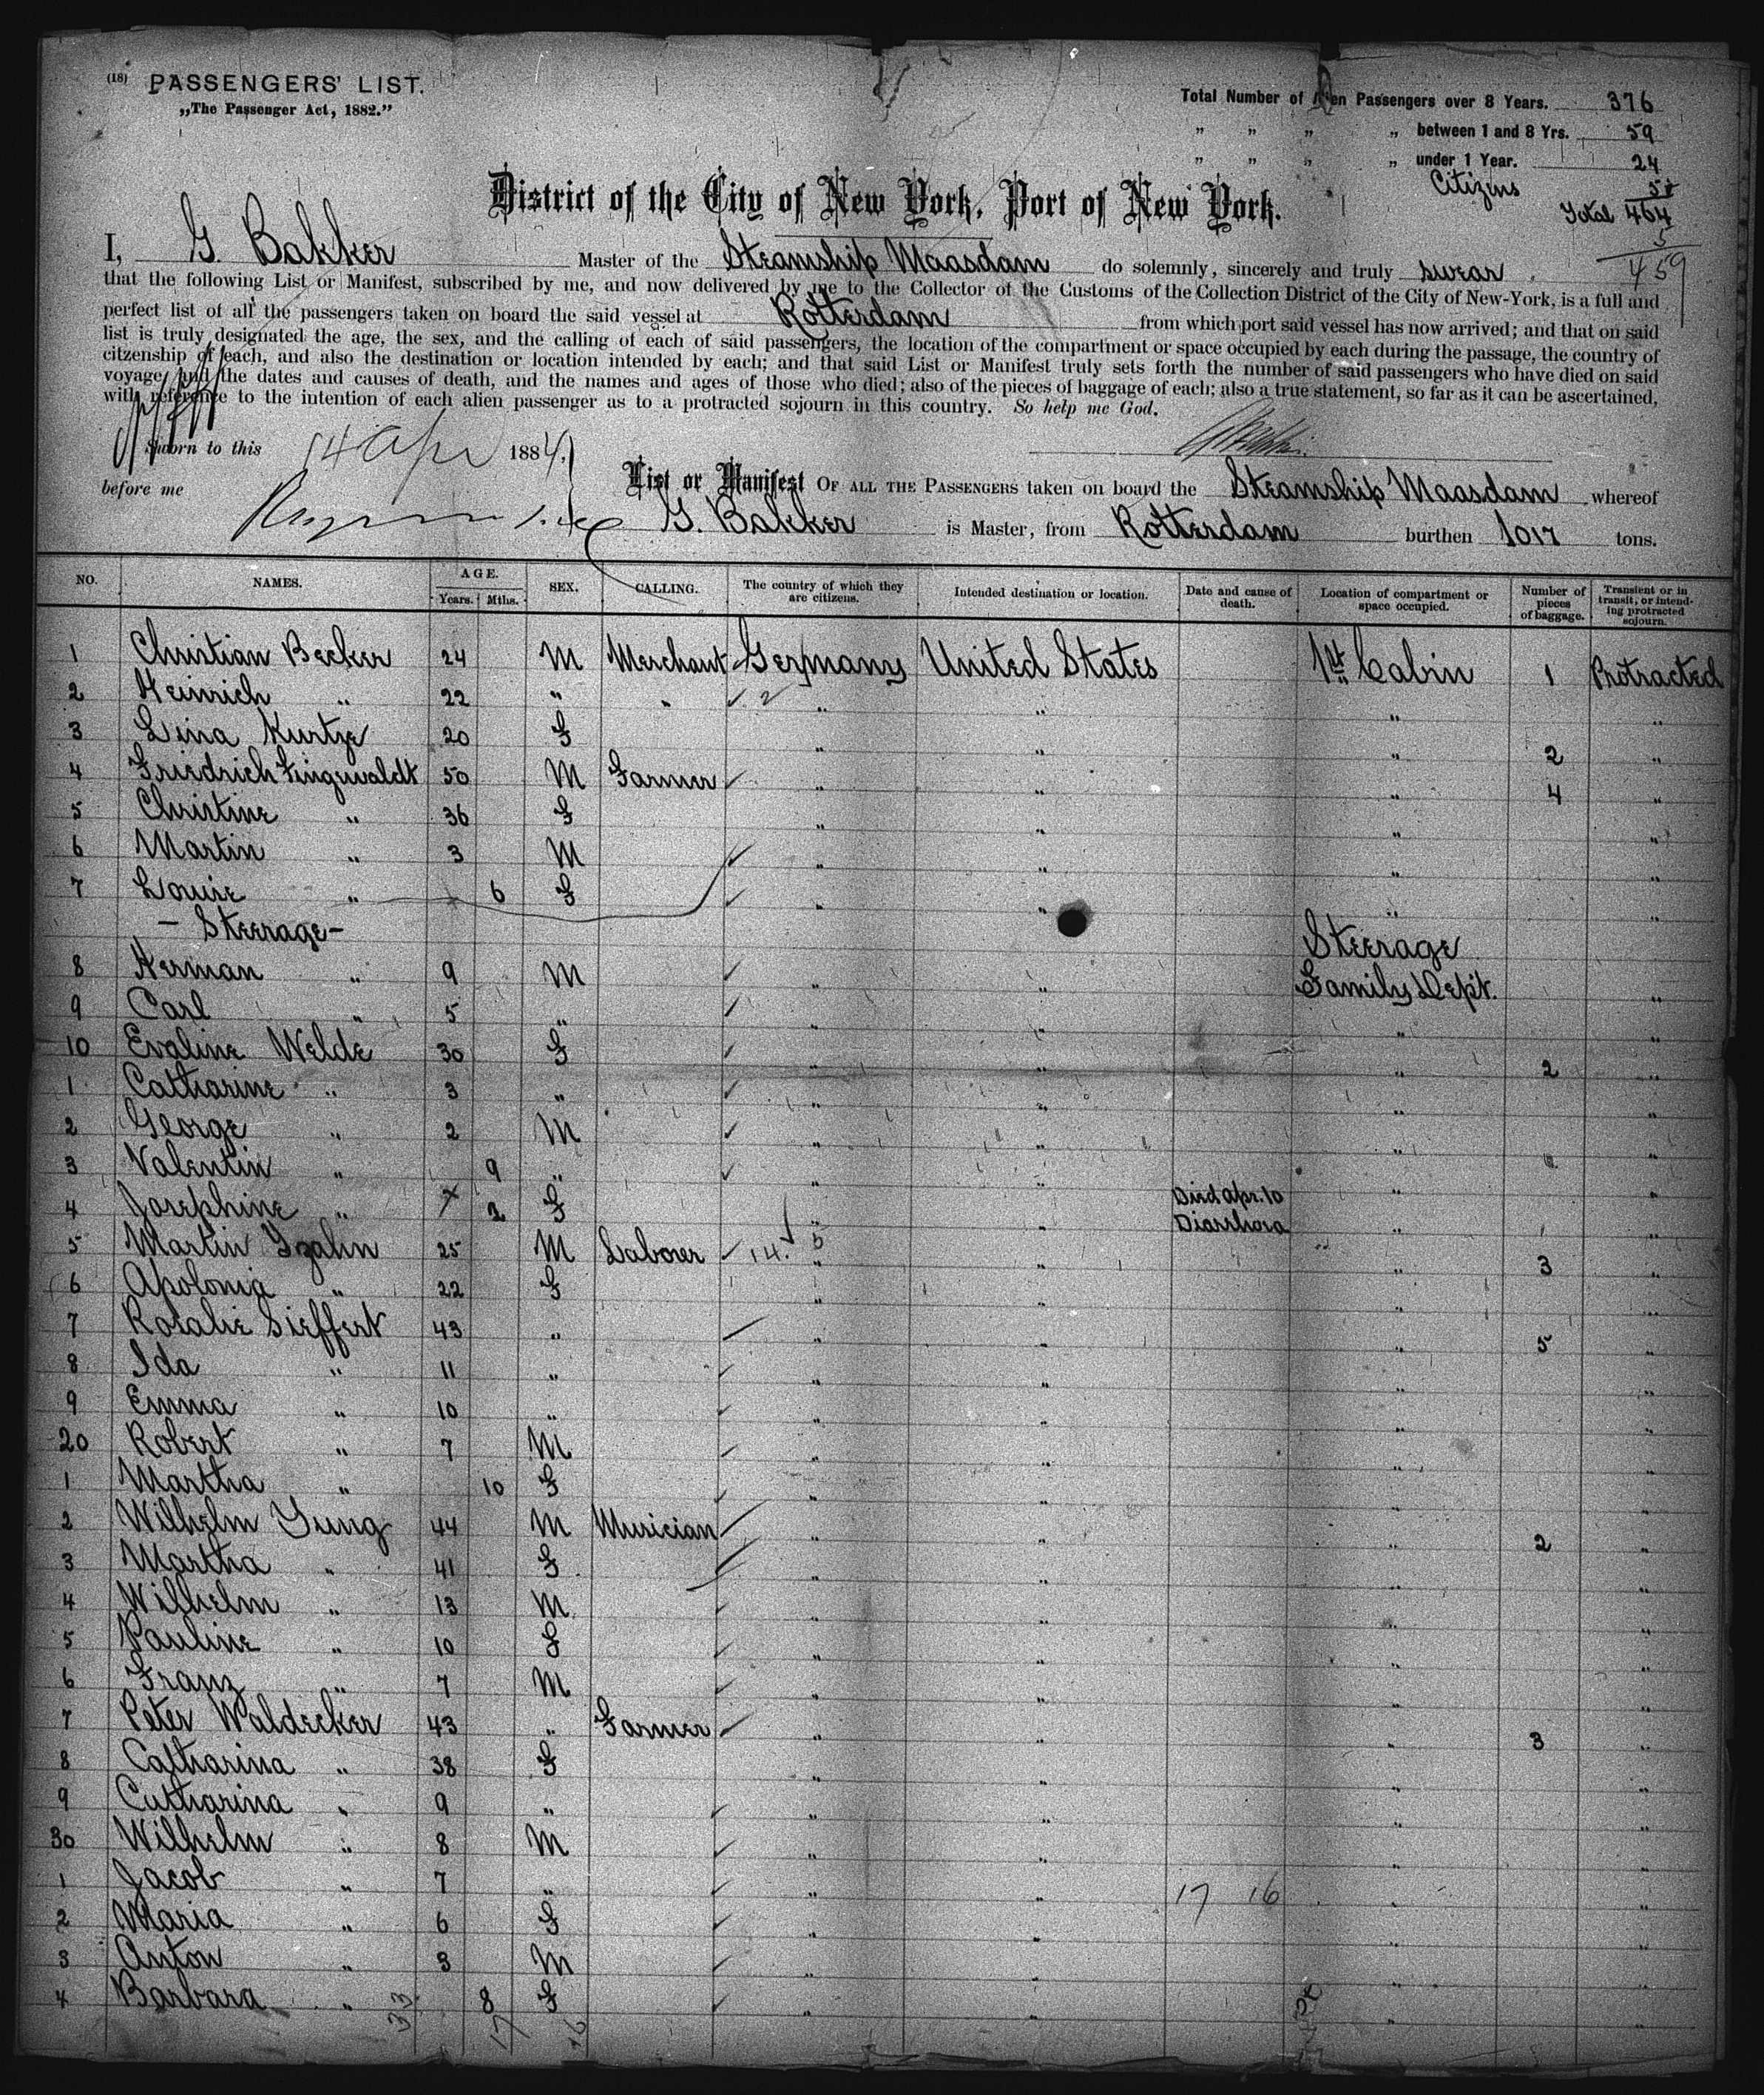 (18) PASSENGERS' LIST.
„The Passenger Act, 1882.”
Total Number of Alien Passengers over 8 Years. 376
„ „ „ „ between 1 and 8 Yrs. 59
„ „ „ „ under 1 Year. 24
Citizens 5
Total 464
5
459
District of the City of New York, Port of New York.
I, G. Bakker Master of the Steamship Maasdam do solemnly, sincerely and truly swear
that the following List or Manifest, subscribed by me, and now delivered by me to the Collector of the Customs of the Collection District of the City of New-York, is a full and
perfect list of all the passengers taken on board the said vessel at Rotterdam from which port said vessel has now arrived; and that on said
list is truly designated the age, the sex, and the calling of each of said passengers, the location of the compartment or space occupied by each during the passage, the country of
citzenship of each, and also the destination or location intended by each; and that said List or Manifest truly sets forth the number of said passengers who have died on said
voyage, and the dates and causes of death, and the names and ages of those who died; also of the pieces of baggage of each; also a true statement, so far as it can be ascertained,
with reference to the intention of each alien passenger as to a protracted sojourn in this country. So help me God.
Sworn to this 14 Apr 1884,
before me
List or Manifest OF ALL THE PASSENGERS taken on board the Steamship Maasdam whereof
G. Bakker is Master, from Rotterdam burthen 1017 tons.
NO. NAMES. AGE. Years. Mths. SEX. CALLING. The country of which they are citizens. Intended destination or location. Date and cause of death. Location of compartment or space occupied. Number of pieces of baggage. Transient or in transit, or intending protracted sojourn.
1 Christian Becker 24 M Merchant Germany United States 1st Cabin 1 Protracted
2 Heinrich „ 22 „ „ 2 „ „ „ „
3 Lina Kurtze 20 F „ „ „ 2 „
4 Friedrich Fingwaldt 50 M Farmer „ „ „ 4 „
5 Christine „ 36 F „ „ „ „
6 Martin „ 3 M „ „ „ „
7 Louise „ 6 F „ „ „ „
- Steerage - Steerage
8 Herman „ 9 M „ „ Family Dept. „
9 Carl „ 5 „ „ „ „ „
10 Evaline Welde 30 F „ „ „ 2 „
1 Catharine „ 3 „ „ „ „ „
2 George „ 2 M „ „ „ „
3 Valentin „ 9 „ „ „ „ „
4 Josephine „ 2 F „ „ Died Apr. 10 Diarrhoea „ „
5 Martin Gzahn 25 M Laborer 14. 5 „ „ „ 3 „
6 Apolonia „ 22 F „ „ „ „
7 Rosalie Sieffert 43 „ „ „ „ 5 „
8 Ida „ 11 „ „ „ „ „
9 Emma „ 10 „ „ „ „ „
20 Robert „ 7 M „ „ „ „
1 Martha „ 10 F „ „ „ „
2 Wilhelm Jung 44 M Musician „ „ „ 2 „
3 Martha „ 41 F „ „ „ „
4 Wilhelm „ 13 M „ „ „ „
5 Pauline „ 10 F „ „ „ „
6 Franz „ 7 M „ „ „ „
7 Peter Waldecker 43 „ Farmer „ „ „ 3 „
8 Catharina „ 38 F „ „ „ „
9 Catharina „ 9 „ „ „ „ „
30 Wilhelm „ 8 M „ „ „ „
1 Jacob „ 7 „ „ „ 17 16 „ „
2 Maria „ 6 F „ „ „ „
3 Anton „ 3 M „ „ „ „
4 Barbara „ 8 F „ „ „ „
33 17 16